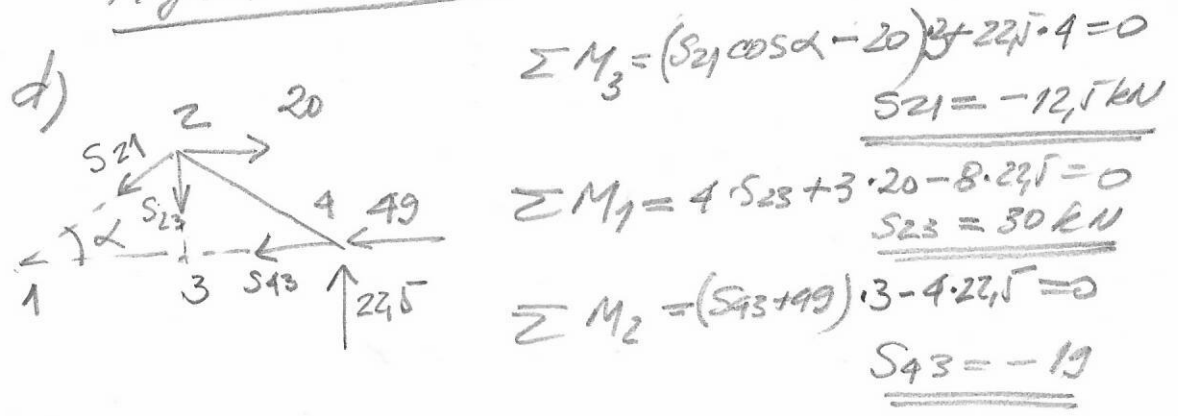 d)
2
20
S21
S23
4
49
α
1
3
S43
22,5
ΣM3=(S21cosα-20)3+22,5·4=0
S21=-12,5kN
ΣM1=4·S23+3·20-8·22,5=0
S23=30kN
ΣM2=(S43+49)·3-4·22,5=0
S43=-19